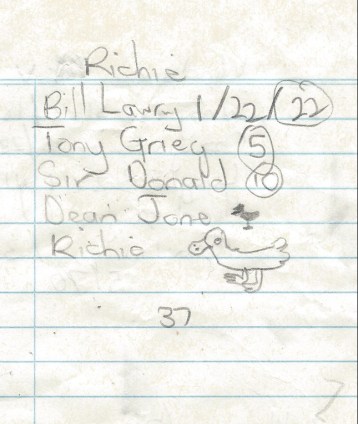 Richie
Bill Lawry 1/22/22
Tony Grieg 5
Sir Donald 10
Dean Jone
Richie
37
7